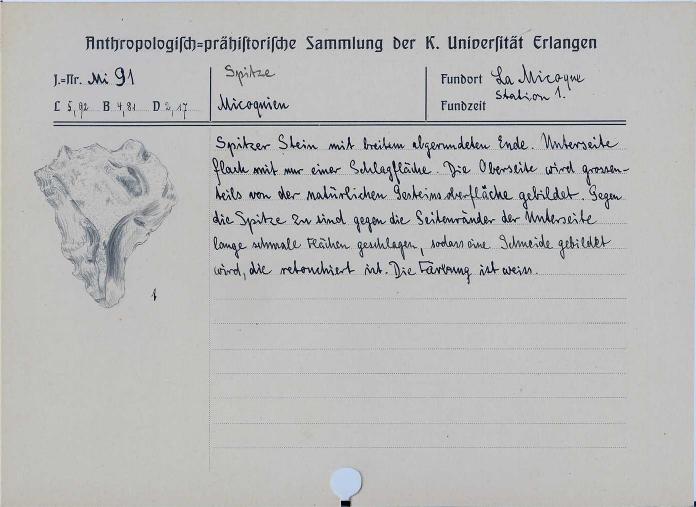 Anthropologisch-prähistorische Sammlung der K. Universität Erlangen
J.-Nr. Mi 91
L 5,92 B 4,81 D 2,17
Spitze
Micoquien
Fundort La Micoque
Station 1.
Fundzeit
Spitzer Stein mit breitem abgerundeten Ende. Unterseite
flach mit nur einer Schlagfläche. Die Oberseite wird grossen-
teils von der natürlichen Gesteinsoberfläche gebildet. Gegen
die Spitze zu sind gegen die Seitenränder der Unterseite
lange schmale Flächen geschlagen, sodass eine Schneide gebildet
wird, die retouchiert ist. Die Färbung ist weiss.
1